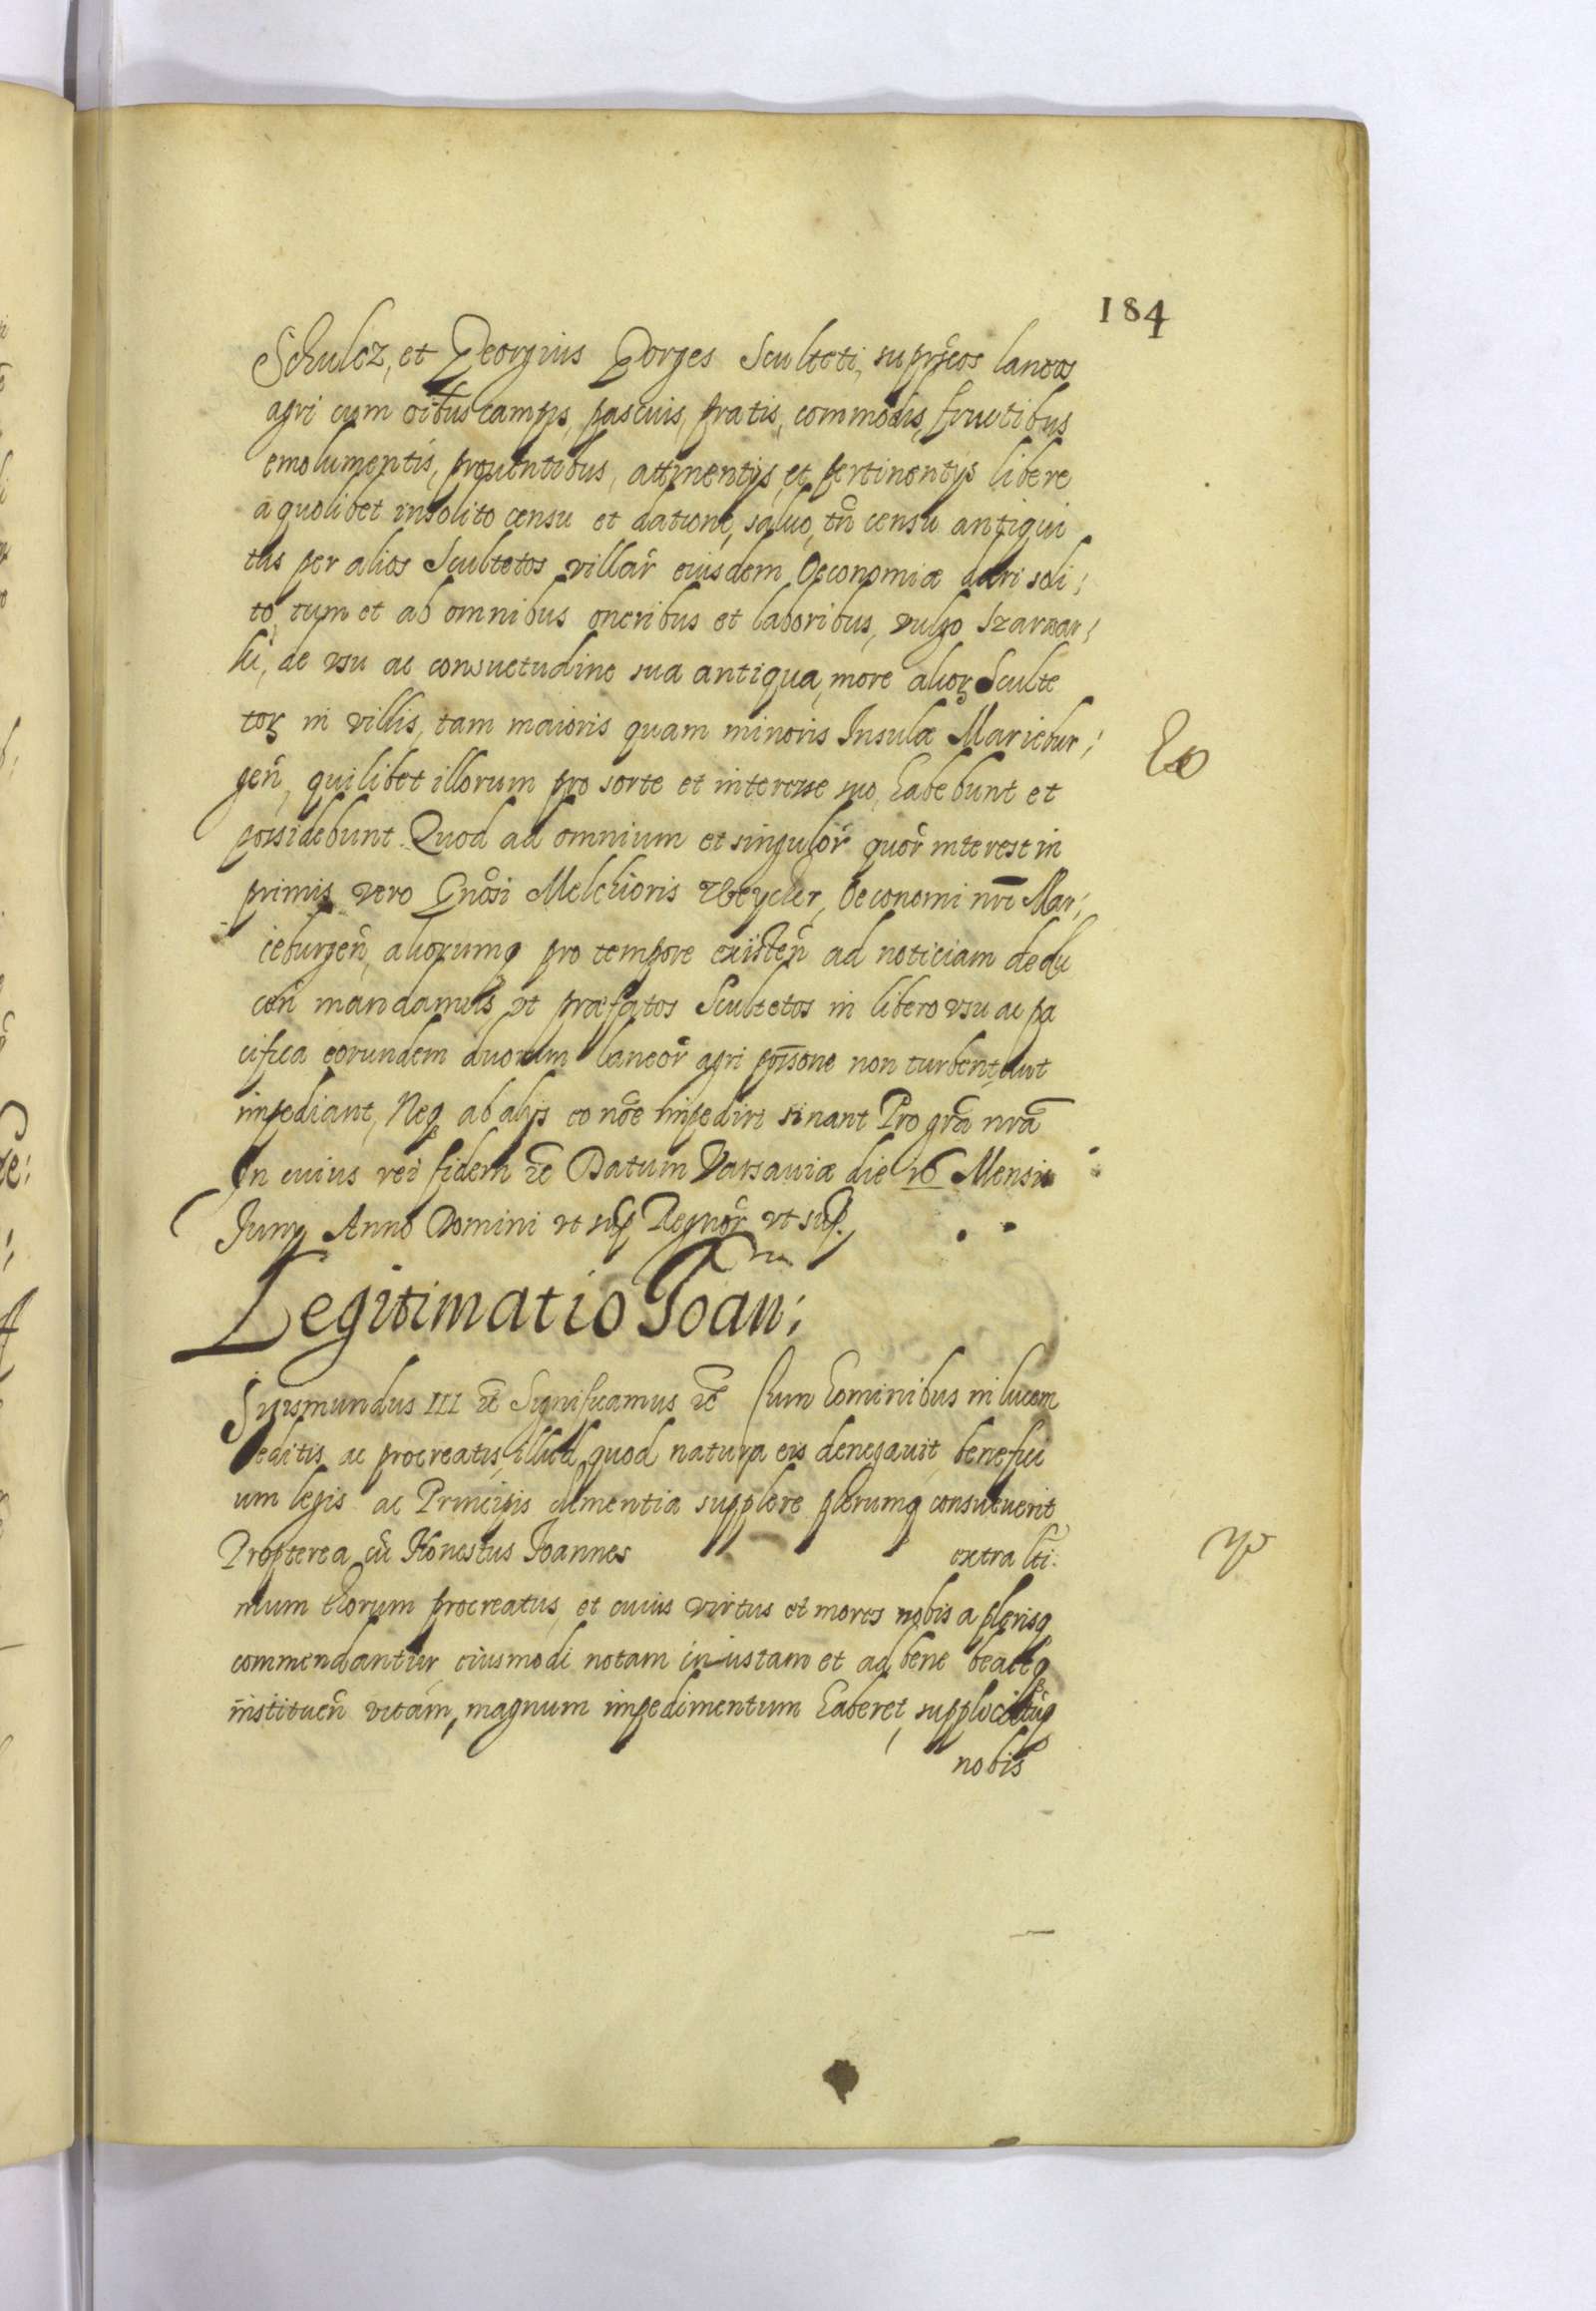 184
Schulcz, et Georgius Gorges Sculteti, supra͠eos laneos
agri cum oi͠bus campis, pascuis, pratis, commodis, fructibus
emolumentis, prouentibus, attinentijs, et pertinentijs libere
a quolibet insolito censu et datione, saluo, tn͠ censu antiqui
tus per alios Scultetos villar͠ eiusdem Oeconomiæ dari soli;
to, tum et ab omnibus oneribus et laboribus, vulgo Szarwar;
ki, de vsu ac consuetudine sua antiqua, more alioꝝ Sculte
toꝝ in villis, tam maioris quam minoris Insulæ Mariebur;
gen͠, quilibet illorum pro sorte et interesse suo, habebunt et
possidebunt. Quod ad omnium et singulor͠ quor͠ interest in
primis vero Gn͠osi Melchioris Weyer, Oeconomi nr͠i Mar;
ieburgen͠, aliorumq pro tempore existen͠ ad noticiam dedu
cen͠ mandamus, vt præfatos Scultetos in libero vsu ac pa
cifica eorundem duorum laneor͠ agri possone non turbent, aut
impediant, Neq ab alijs eo no͠e impediri sinant Pro gr͠a nr͠a
In cuius rei fidem ec͠ Datum Varsauiæ die 16 Mensis
Junij Anno Domini vt sup Regnor͠ vt sup.
Legitimatio Joan:
Sigismundus III ec͠ Significamus ec͠ Cum hominibus in lucem
editis ac procreatis, illud quod natura eis denegauit, benefici
um legis ac Principis clementia supplere plerumq consueuerit
Propterea cu͠ Honestus Joannes extra lt͠i:
mum thorum procreatus, et cuius virtus et mores nobis a plerisq
commendantur, eiusmodi notam iniustam et ad bene beateq
instituen͠ vitam, magnum impedimentum haberet,
nobis